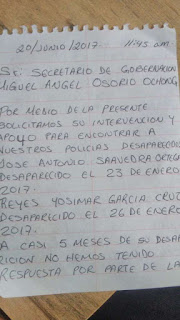 20/JUNIO/2017 11:45 am
SR. SECRETARIO DE GOBERNACION
MIGUEL ANGEL OSORIO CHONG.
POR MEDIO DE LA PRESENTE
SOLICITAMOS SU INTERVENCION Y
APOYO PARA ENCONTRAR A
NUESTROS POLICIAS DESAPARECIDO
JOSE ANTONIO SAAVEDRA ORTEGA
DESAPARECIDO EL 23 DE ENERO
2017.
REYES YOSIMAR GARCIA CRUZ
DESAPARECIDO EL 26 DE ENERO
2017.
A CASI 5 MESES DE SU DESAPA
RICION NO HEMOS TENIDO
RESPUESTA POR PARTE DE LA